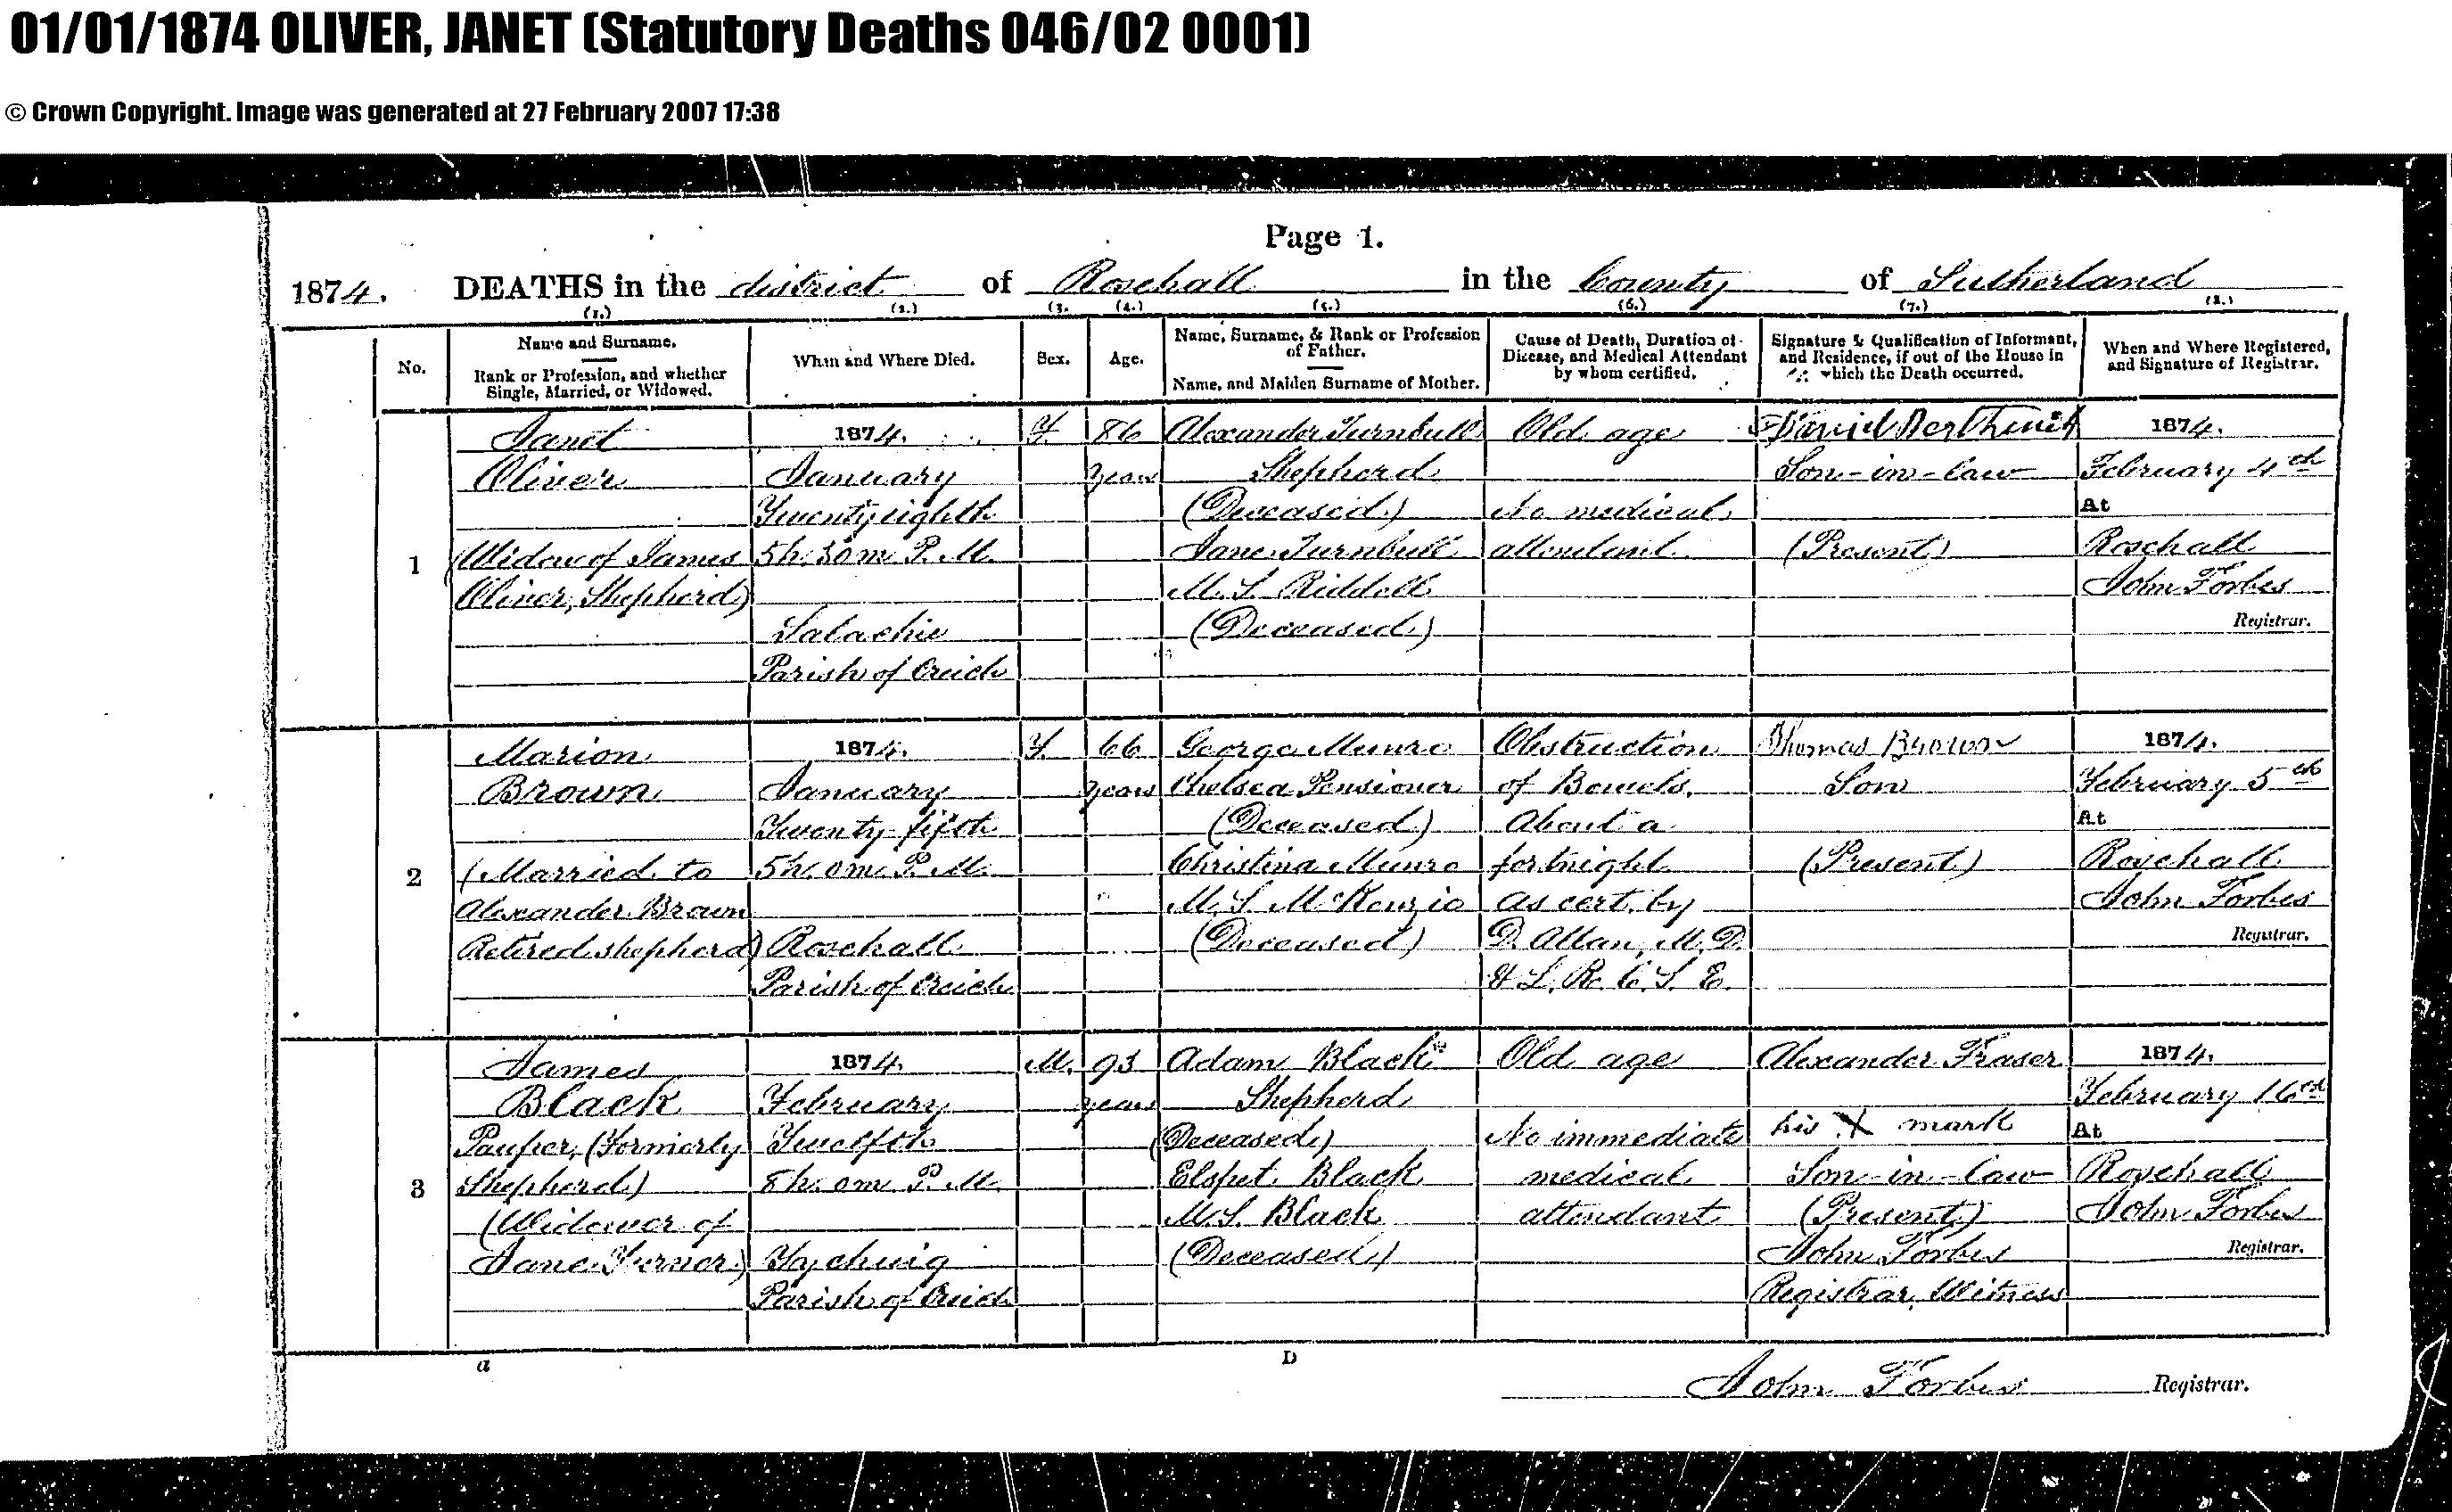 01/01/1874 OLIVER, JANET (Statutory Deaths 046/02 0001)
© Crown Copyright. Image was generated at 27 February 2007 17:38
Page 1.
1874. DEATHS in the district of Rosehall in the County of Sutherland
(1.) (2.) (3. (4.) (5.) (6.) (7.) (8.)
No.
Name and Surname.
Rank or Profession, and whether
Single, Married, or Widowed.
When and Where Died.
Sex.
Age.
Name, Surname, & Rank or Profession
of Father.
Name, and Maiden Surname of Mother.
Cause of Death, Duration of
Disease, and Medical Attendant
by whom certified.
Signature & Qualification of Informant,
and Residence, if out of the House in
which the Death occurred.
When and Where Registered,
and Signature of Registrar.
1
Janet
Oliver
(Widow of James
Oliver, Shepherd)
1874.
January
Twenty eighth
5h. 30m. P.M.
Salachie
Parish of Creich
F.
86
years
Alexander Turnbull
Shepherd
(Deceased)
Jane Turnbull
M.S. Riddell
(Deceased)
Old age
No medical
attendant
David
Son-in-law
(Present)
1874.
February 4th
At
Rosehall
John Forbes
Registrar.
2
Marion
Brown
(Married to
Alexander Brown
Retired shepherd)
1874.
January
Twenty-fifth
5h. 0m. P.M.
Rosehall
Parish of Creich
F.
66
years
George Munro
Chelsea Pensioner
(Deceased)
Christina Munro
M.S. McKenzie
(Deceased)
Obstruction
of Bowels.
About a
fortnight
As cert. by
D. Allan, M.D.
& L.R.C.S.E.
Thomas Brown
Son
(Present)
1874.
February 5th
At
Rosehall
John Forbes
Registrar.
3
James
Black
Pauper, (Formerly
Shepherd)
(Widower of
Jane Turner)
1874.
February
Twelfth
8h. 0m. P.M.
Parish of Creich
M.
93
years
Adam Black
Shepherd
(Deceased)
Elspet Black
M.S. Black
(Deceased)
Old age
No immediate
medical
attendant
Alexander Fraser
his X mark
Son-in-law
(Present)
John Forbes
Registrar, Witness
1874.
February 16th
At
Rosehall
John Forbes
Registrar.
a D
John Forbes Registrar.